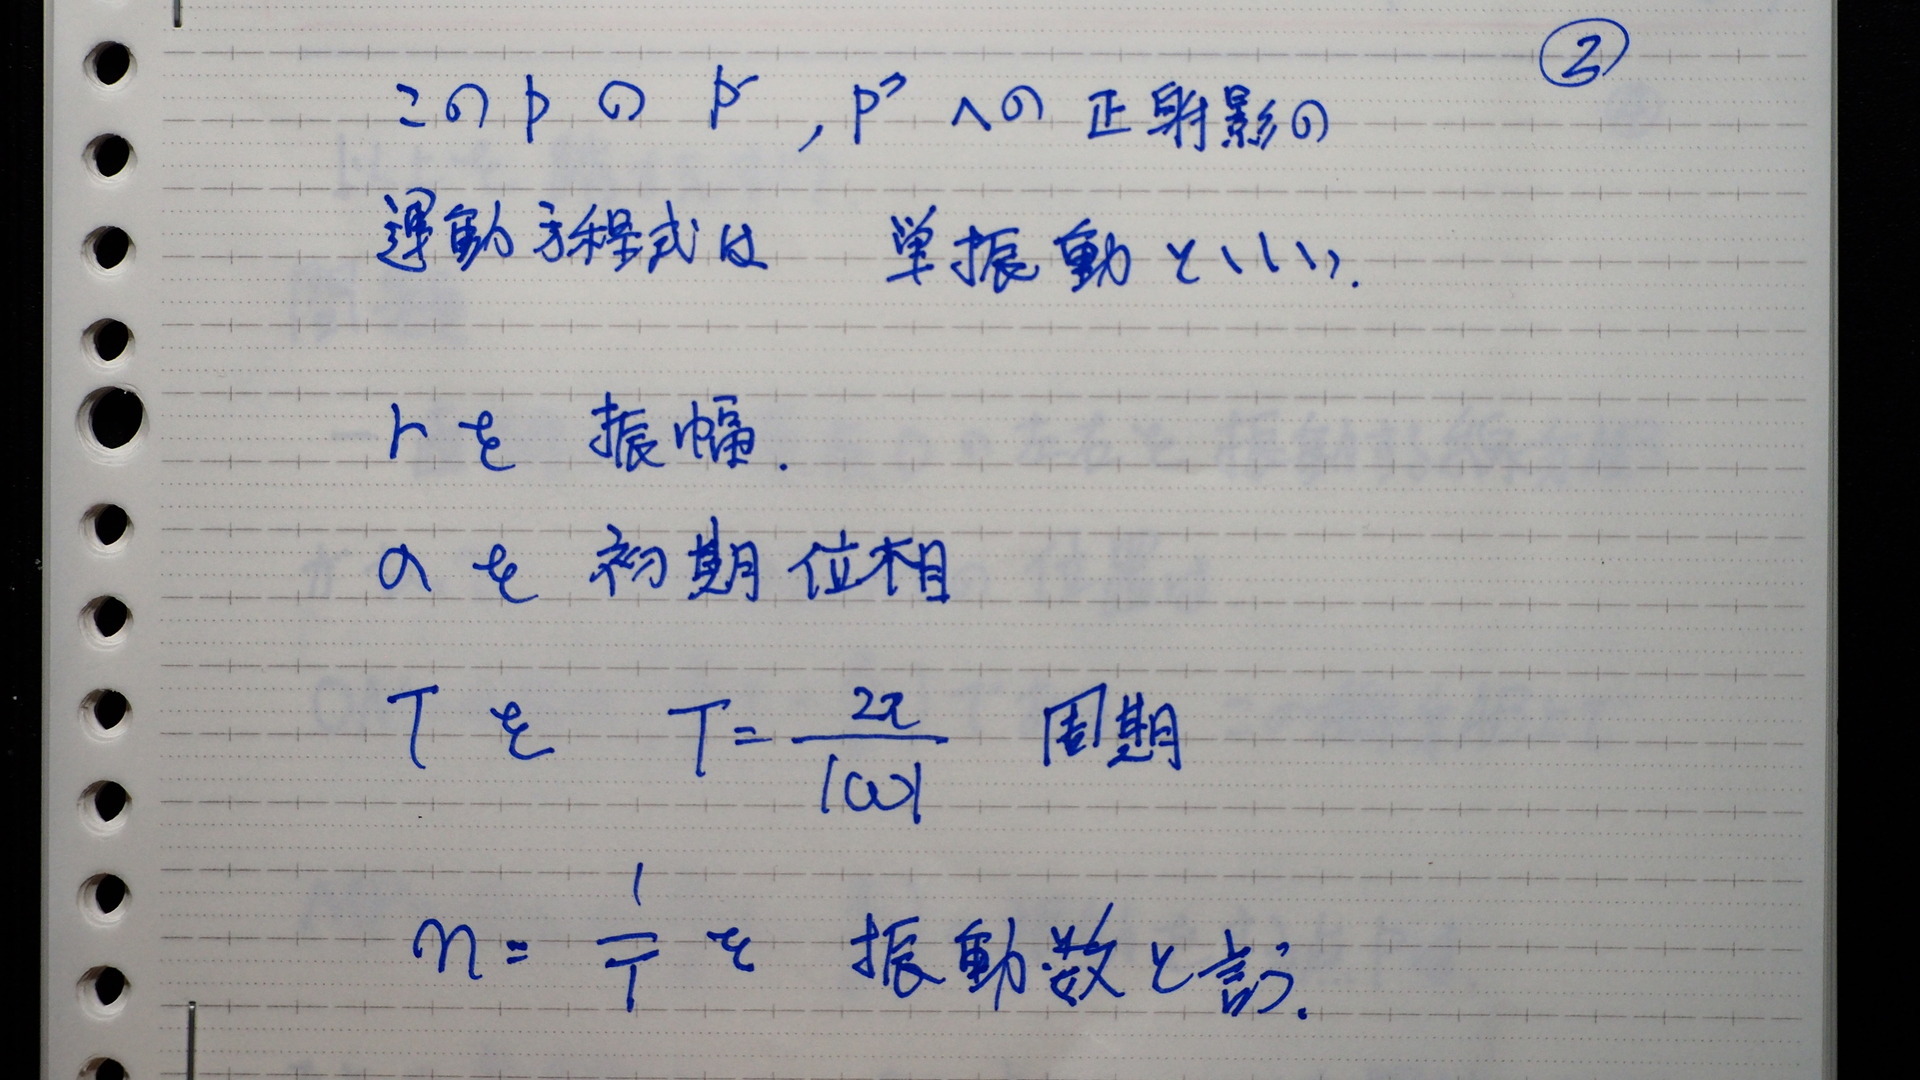 ②
このPのP',P''への正射影の
運動方程式は 単振動といい.
rを 振幅.
αを 初期位相
Tを T=2π/|ω| 周期
n=1/Tを 振動数と言う.